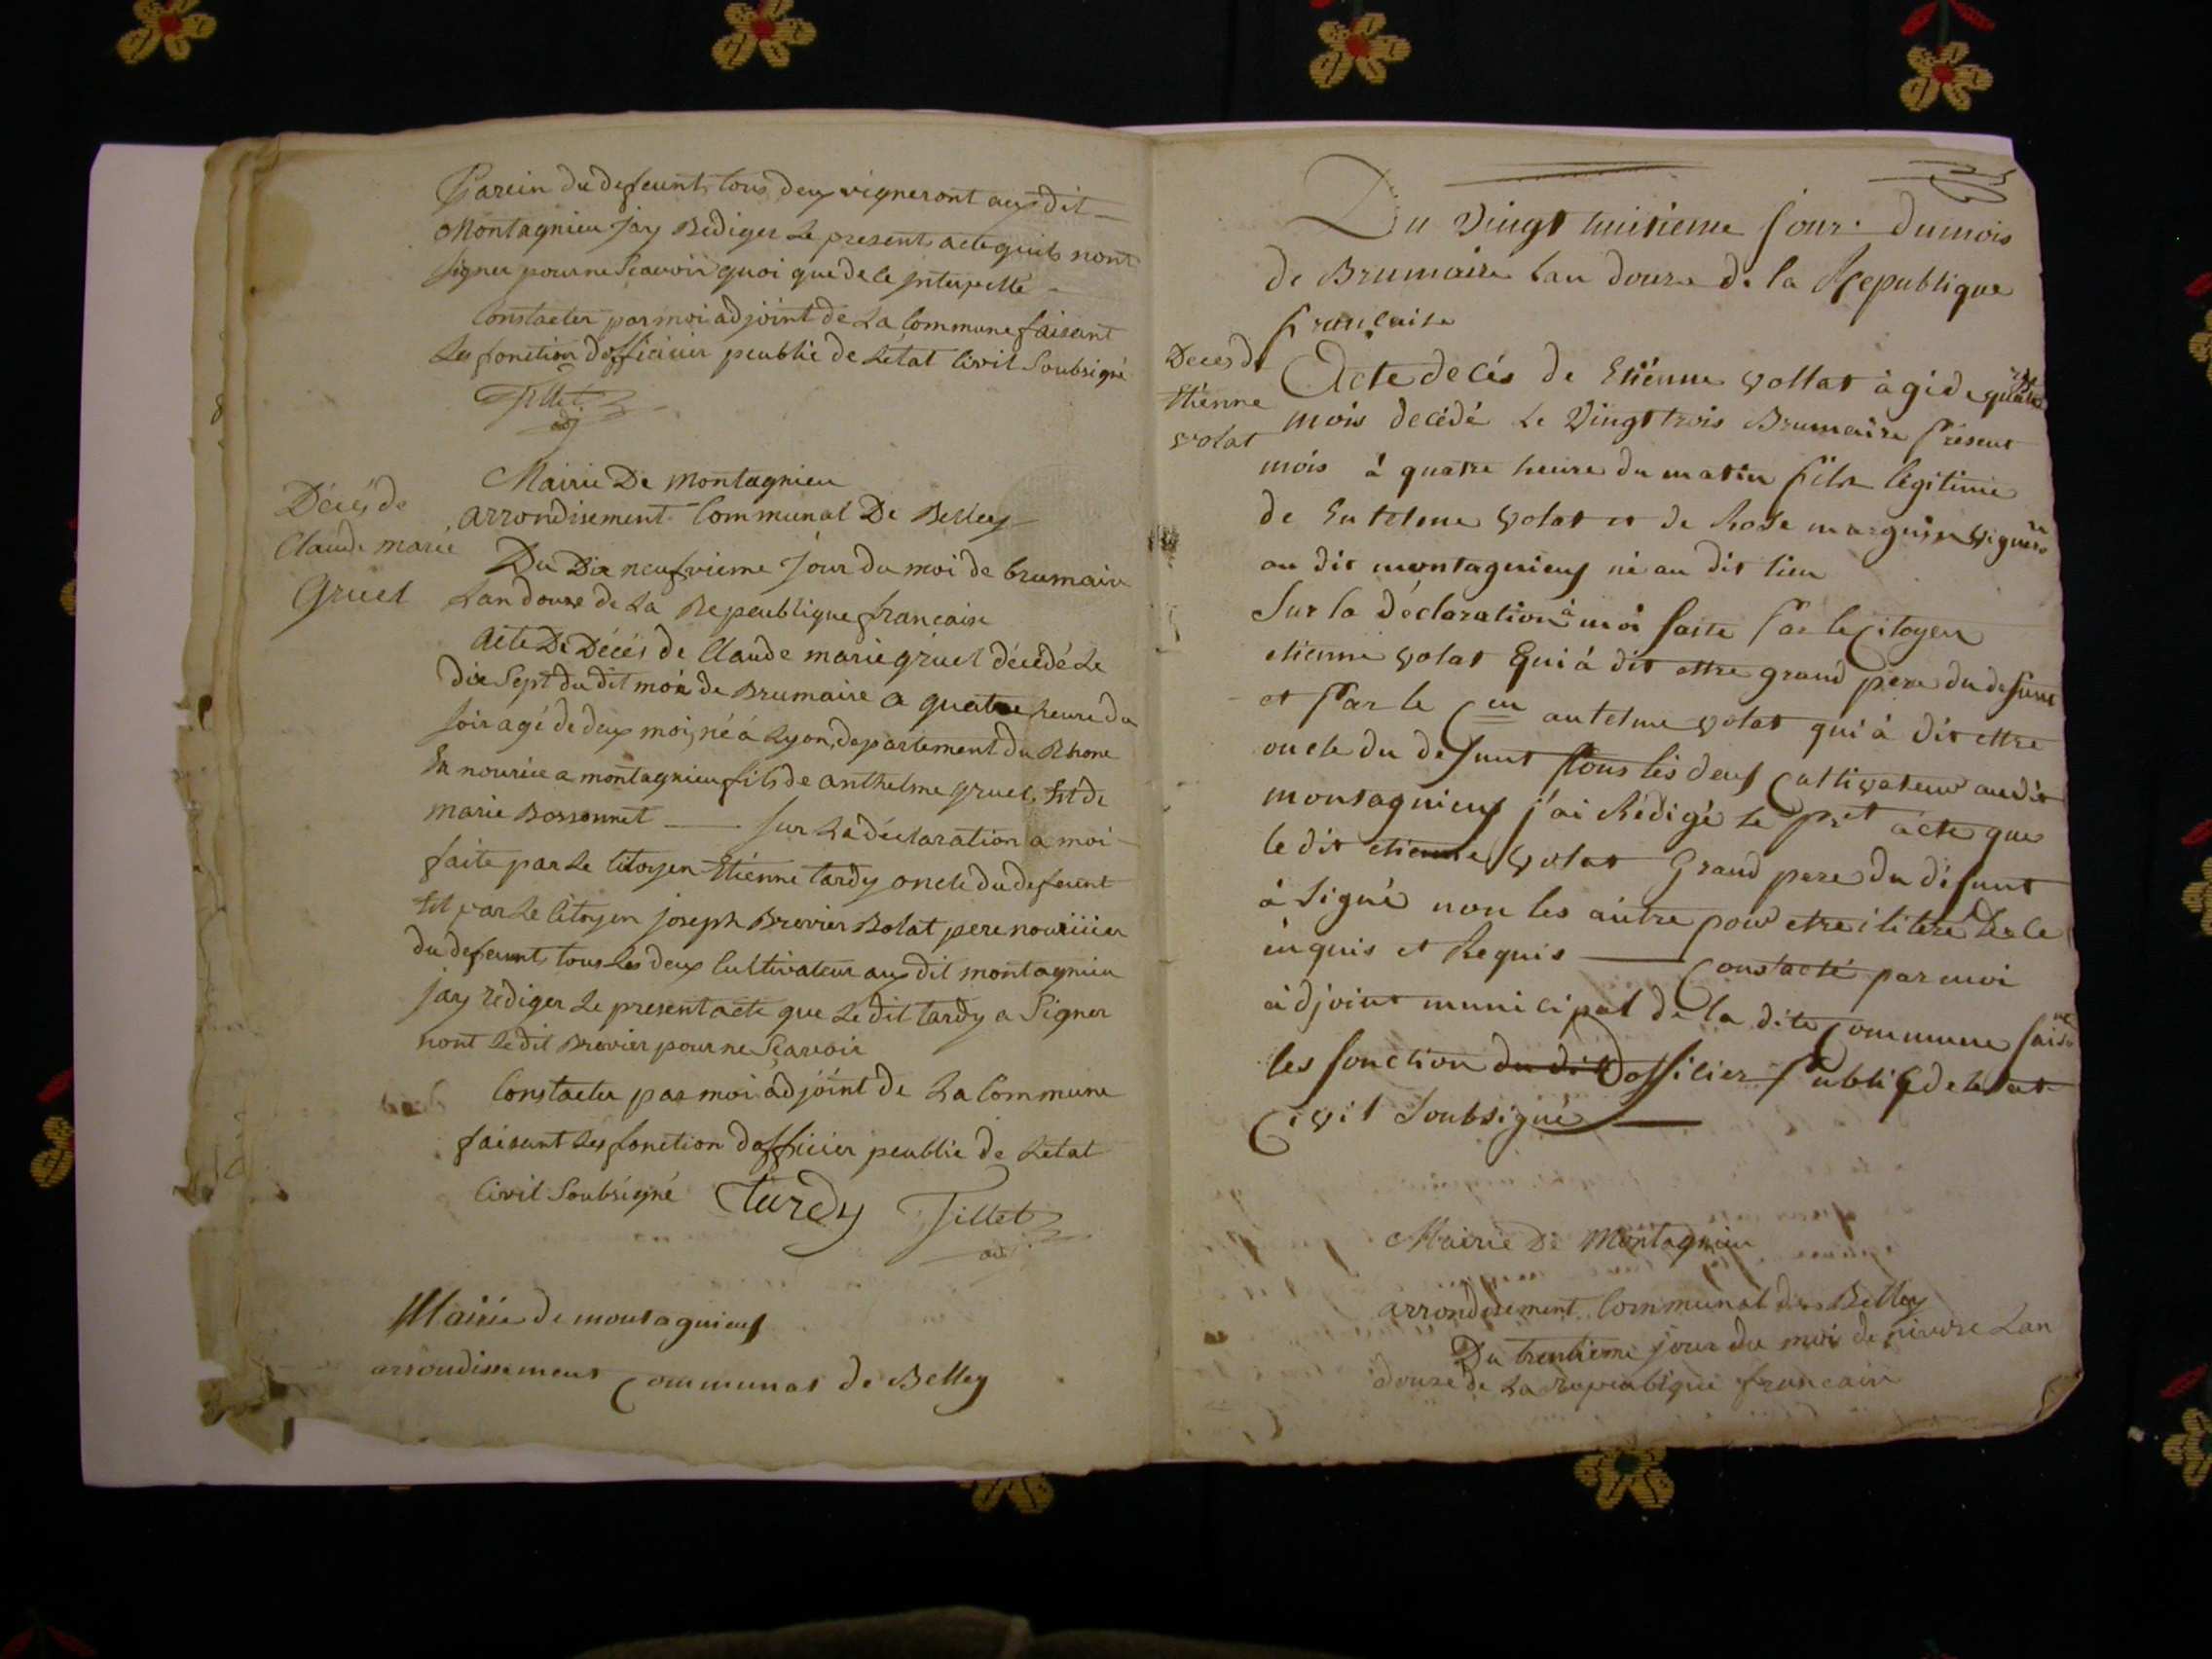 Parein du defeunt, tous deux vigneront aux dit
Montagnieu Jay Rediger le present acte quils nont
signer pour ne Scavoir quoi que de ce Interpellé
Constacter par moi adjoint de La Commune faisant
Les fonction dofficiier peublic de Létat Civil Soubsigné
Tillet
adj
Mairie De Montagnieu
arrondisement Communal De Belley
Décés de
Claude marie
Gruel
Du Dix neufvieme Jour du moi de brumaire
Lan douze de La Republique francaise
Acte De Décés de Claude marie gruel décédé Le
dix Sept du dit mois de Brumaire a quatre heure du
soir agé de deux moi, né á Lyon, departement du Rhone
En nourice a montagnieu fils de anthelme gruel Et de
marie Bossonnet — sur La déclaration a moi
faite par Le Citoyen Etiénne tardy oncle du defeunt
Et par Le Citoyen joseph Brevier Bolat pere nouriiier
du defeunt, tous Les deux Cultivateur aux dit montagnieu
jay rediger Le present acte que Le dit tardy a Signer
nont Le dit Brevier pour ne Scavoir
Constacter par moi adjóint de La Commune
faisant Les fonction dofficier peublic de Létat
Civil Soubsigné tardy Tillet
adj
Mairie de montagnieux
arrondissement Communal de Belley
Du Vingt huitieme Jour du mois
de Brumaire lan douze de la Republique
francaise
Décés de
Etiénne
volat
Acte decés de Etiénne vollat àgé de quatre
mois decédé le Vingt trois Brumaire présent
mois à quatre heure du matin fils légitime
de Entelme volat et de Rose marguin vigneron
au dit montagnieux né au dit lieu
Sur la déclaration à moi faite par le Citoyen
etienne volat Qui à dit ettre grand pere du defunt
et par le Cen antelme volat qui à dit ettre
oncle du defunt tous les deux Cultivateur au dit
montagnieux j'ai Rédigé le prst acte que
le dit etienne volat Grand pere du défunt
à signé non les autre pour etre ilitéré de ce
enquis et Requis — Constacté par moi
adjoint municipal de la dite Commune faisant
les fonction du dit dofficier Public de letat
Civil Soubsigné
Mairie De Montagnieu
arrondisement Communal de Belley
Du trentieme jour du moi de nivose Lan
douze de La Republique francaise